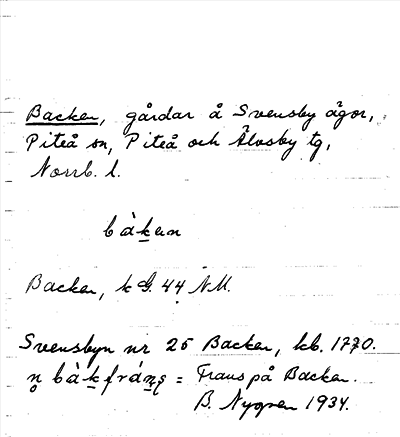 Backen, gårdar å Svensby ägor,
Piteå sn, Piteå och Älvsby tg,
Norrb. l.
bàk̲en
Backen, k G. 44 N.M.
Svensbyn nr 25 Backen, kb. 1770.
n̥ bàk̲frán̲s = Frans på Backen.
B. Nygren 1934.